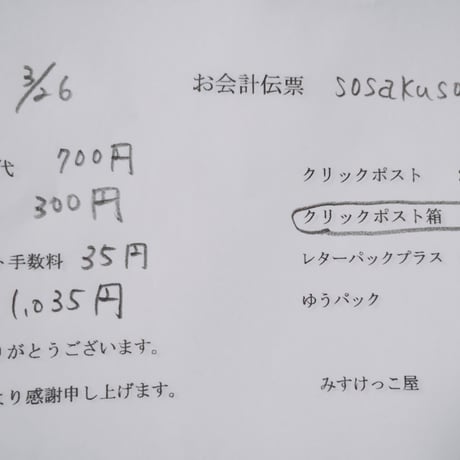 3/26
お会計伝票 sosakuso
代 700円
300円
ト手数料 35円
1,035円
りがとうございます。
より感謝申し上げます。
クリックポスト
クリックポスト箱
レターパックプラス
ゆうパック
みすけっこ屋